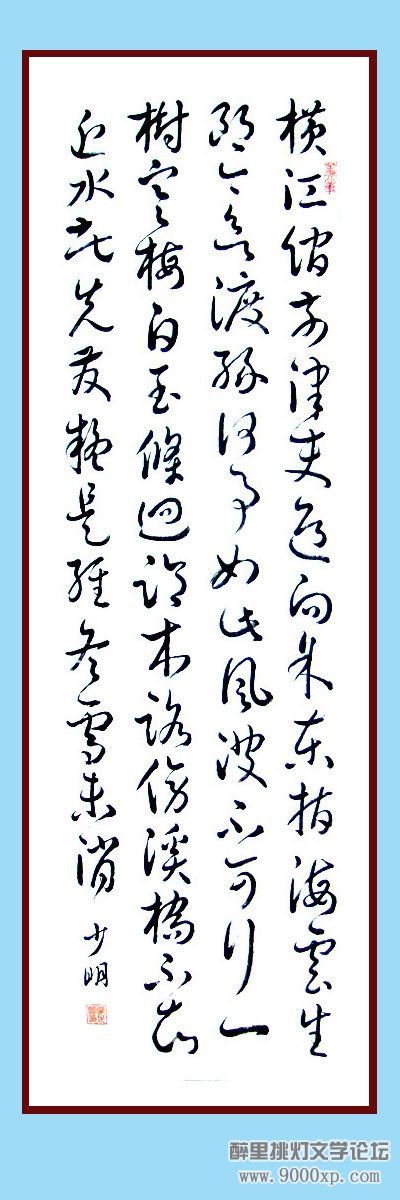 橫江館前津吏迎向余東指海雲生
郎今欲渡緣何事如此風波不可行一
樹寒梅白玉條迴臨村路傍溪橋不知
近水花先發疑是經冬雪未消
少明
醉里挑灯文学论坛
www.9000xp.com